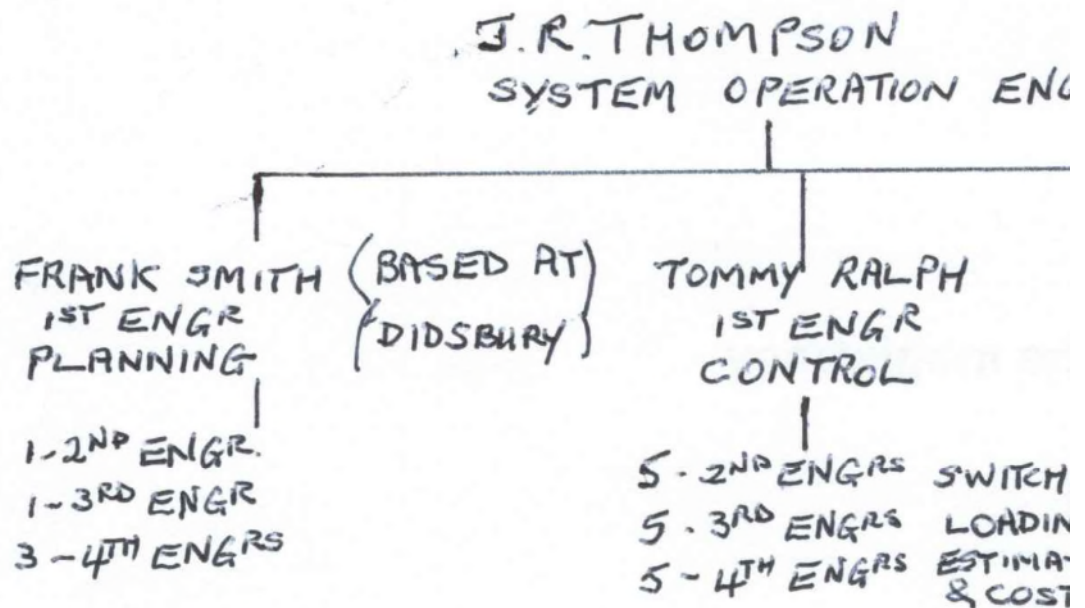 J.R. THOMPSON
SYSTEM OPERATION ENG
FRANK SMITH (BASED AT
DIDSBURY)
1ST ENGR
PLANNING
1-2ND ENGR.
1-3RD ENGR
3-4TH ENGRS
TOMMY RALPH
1ST ENGR
CONTROL
5-2ND ENGRS SWITCH
5-3RD ENGRS LOADIN
5-4TH ENGRS ESTIMAT
& COST